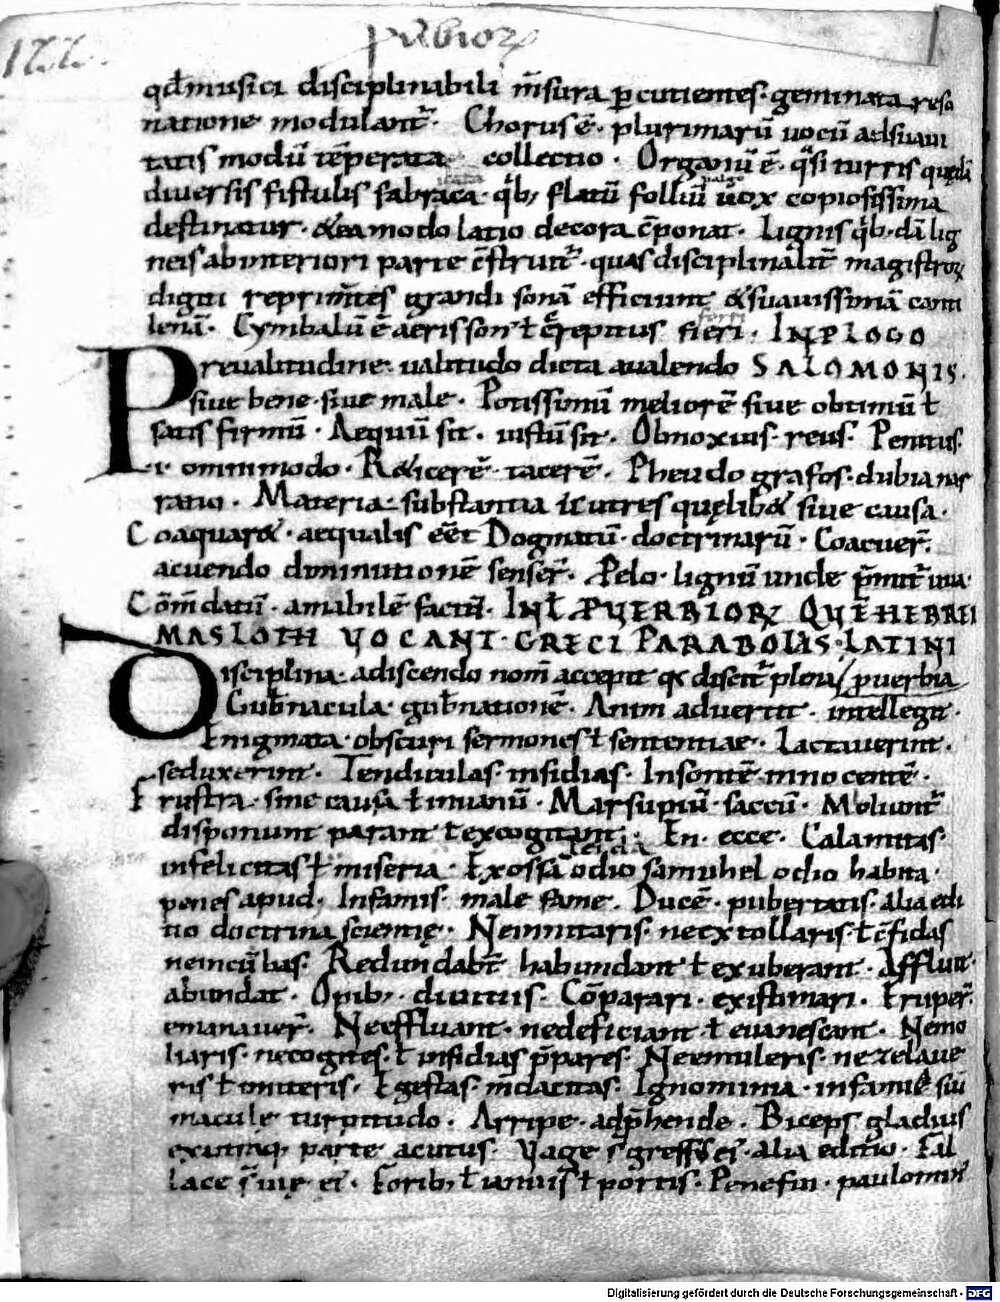 177.
puerbioꝝ
qđ musici disciplinabili m̄sura ꝑcutientes · geminata reso
natione modulant᷑ · Chorus ē · plurimarū uocū ad suaui
tatis modū tēperata collectio · Organū ē · q̄si turris quędā
diuersis fistulis fabricata · q̄b; flatū folliū uox copiosissima
destinatur · & ea modolatio decora c̄ponat · Lignis q̄b;dā lig
neis ab interiori parte c̄struit᷑ · quas disciplinabilit̄ magistroꝝ
digiti reprim̄tes grandi sonā efficiunt & suauissimā canti
lenā · Cymbalū ē aeris son᷒ ł crepitus fieri · IN PLOGO
Preualitudine · ualitudo dicta a ualendo SALOMONIS ·
siue bene · siue male · Potissimū meliorē siue obtimū ł
satis firmū · Aequū sit · iustū sit · Obnoxius · reus · Penitus
omnimodo · Reticerē · tacerē · Pheudo grafos · dubia nar
ratio · Materia · substantia uł res quęlib& siue causa ·
Coaquar& · aequalis eēt Dogmatū · doctrinarū · Coacuer̄
acuendo diminutionē senser̄ · Pelo · lignū unde p̄mit᷑ uua ·
Cōm̄datiū · amabilē factū · INT PUERBIORꝜ QUE HEBREI
MASLOTH VOCANT · GRECI PARABOLAS · LATINI
Disciplina · a discendo nom̄ accepit qꝛ discit᷑ plena / puerbia
Gub̄nacula · gub̄natione · Animaduertit · intellegit ·
Enigmata · obscuri sermones ł sententiae · Lactauerint ·
seduxerint · Tendiculas · insidias · Insontē · innocentē ·
Frustra · sine causa ł inuanū · Marsupiū · saccū · Moliunt᷑
disponunt parant ł excogitant · En · ecce · Calamitas ·
infelicitas ł miseria · Exossā odio samuhel odio habita ·
penes apud · Infamis · male fame · Ducē · pubertatis · alia edi
tio doctrina scientię · Ne innitaris · ne extollaris ł c̄fidas
ne incūbas · Redundab̄t habundant ł exuberant · Affluit
abundat · Opib; · diuitiis · Cōparari · existimari · Eruper̄
emanauer̄ · Ne effluant · ne deficiant ł euanescant · Ne mo
liaris · ne cogites · ł insidias p̄pares · Ne emuleris · ne zelaue
ris ł imiteris · Egestas · mdacitas · Ignominia · infamię siū
macule turpitudo · Arripe · adp̄hende · Biceps gladius
ex utraq; parte acutus · Vage sī gressus ei᷒ · alia editio · Fal
lace sī uię ei᷒ · Forib; ł ianuis ł portis · Pene fin · paulomin᷒
Digitalisierung gefördert durch die Deutsche Forschungsgemeinschaft - DFG